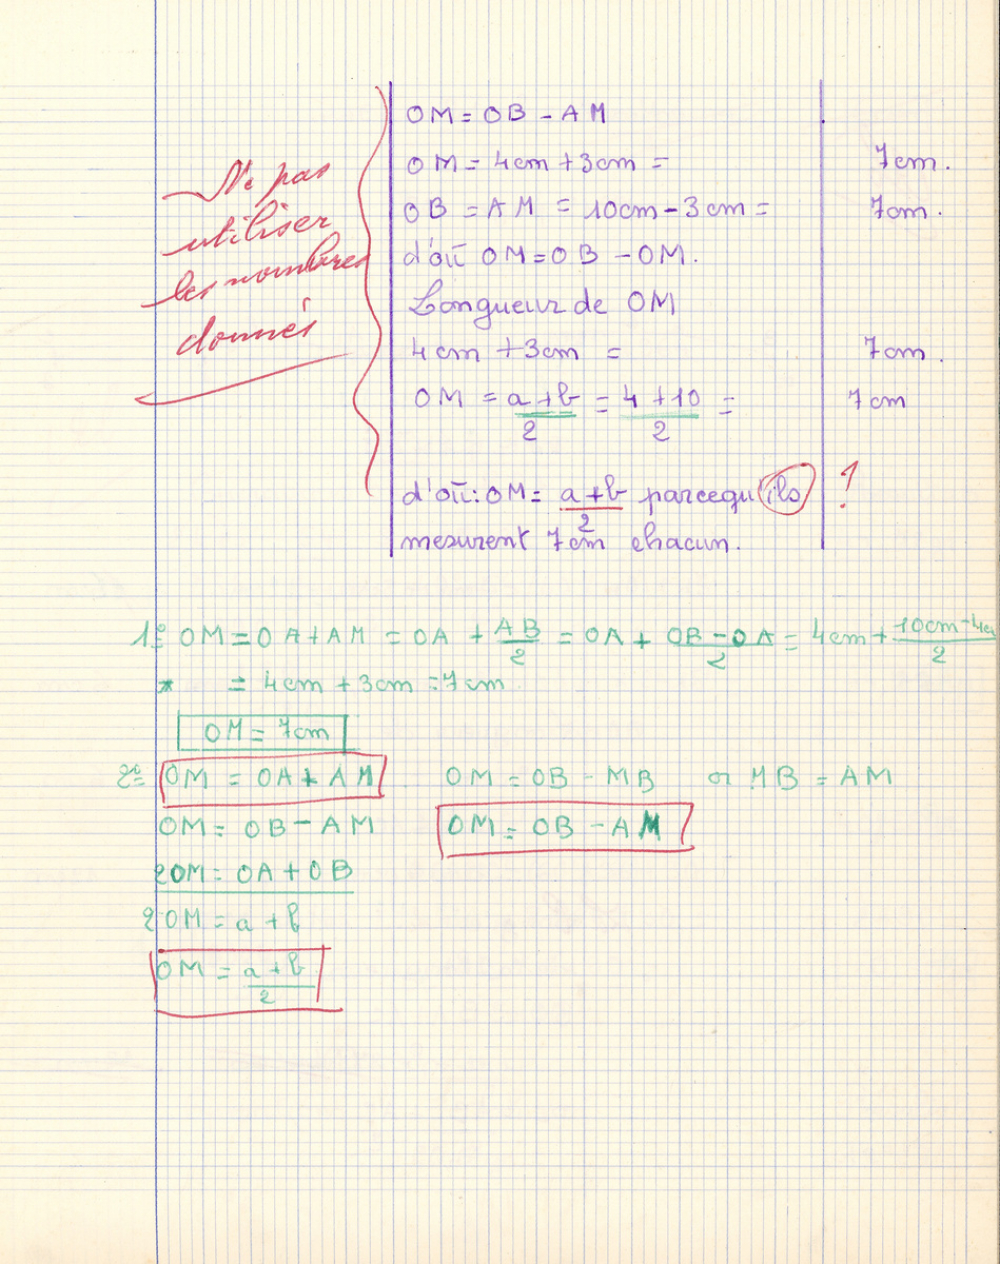 OM = OB - AM
OM = 4cm + 3cm = 7cm.
OB = AM = 10cm - 3cm = 7cm.
d'où OM = OB - OM.
Longueur de OM
4cm + 3cm = 7cm.
OM = a + b / 2 = 4 + 10 / 2 = 7cm
d'où : OM = a + b / 2 parcequ'ils ?
mesurent 7cm chacun.
Ne pas
utiliser
les nombres
donnés
1º OM = OA + AM = OA + AB / 2 = OA + OB - OA / 2 = 4cm + 10cm - 4cm / 2
= 4cm + 3cm = 7cm
OM = 7cm
2º OM = OA + AM OM = OB - MB or MB = AM
OM = OB - AM OM = OB - AM
2OM = OA + OB
2OM = a + b
OM = a + b / 2